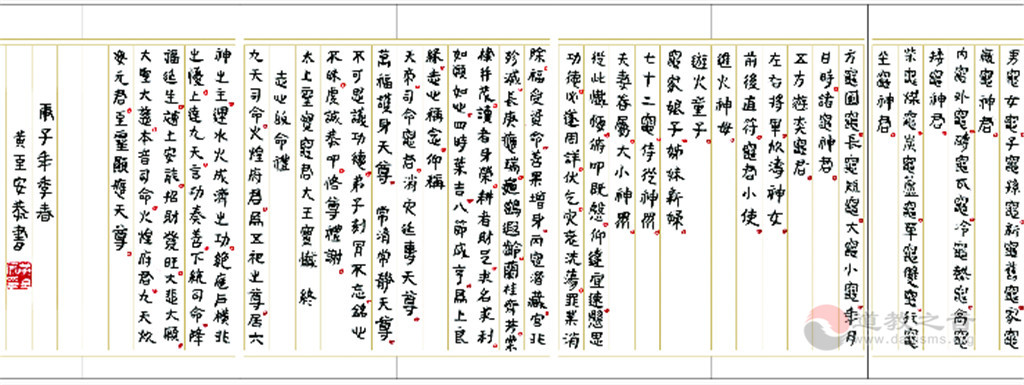 男竈女竈子竈孫竈新竈舊竈家竈
竈神君
內竈外竈磚竈瓦竈冷竈熱竈高竈
矮竈神君
柴竈煤竈炭竈蘆竈單竈雙竈行竈
坐竈神君
方竈圓竈長竈短竈大竈小竈年月
日時諸竈神君
五方遊奕竈君
左右將軍奴濤神女
前後直符竈君小使
進火神母
遊火童子
竈家娘子姊妹新婦
七十二竈侍從神衆
夫妻眷屬大小神衆
從此懺悔俯叩既慇仰達宜速慇思
功德必遂周詳伏乞灾衰洗蕩罪業消
除福受資命善果增身丙竈潛藏官非
殄滅長庚應瑞鶴遐齡蘭桂齊芳棠
棣并茂讀者身榮耕者財乞求名求利
如願如心四時葉吉八節咸亨爲上良
緣志心稱念仰稱
天帝司命竈君消灾延壽天尊
萬福護身天尊 常清常靜天尊
不可思議功德弟子刻骨不忘銘心
不昧虔誠恭叩恪尊禮謝
太上靈寶竈君大王寶懺 終
志心皈命禮
九天司命火煌府君爲五祀之尊居六
神之主運水火成濟之功絶庖厨橫非
之憂上達九天言功奏善下統司命降
福延生鎮土安龍招財發旺大悲大願
大聖大慈本音司命火煌府君九天炊
爨元君至靈顯應天尊
丙子年季春
黄至安恭書
道教之音
daoisms.org